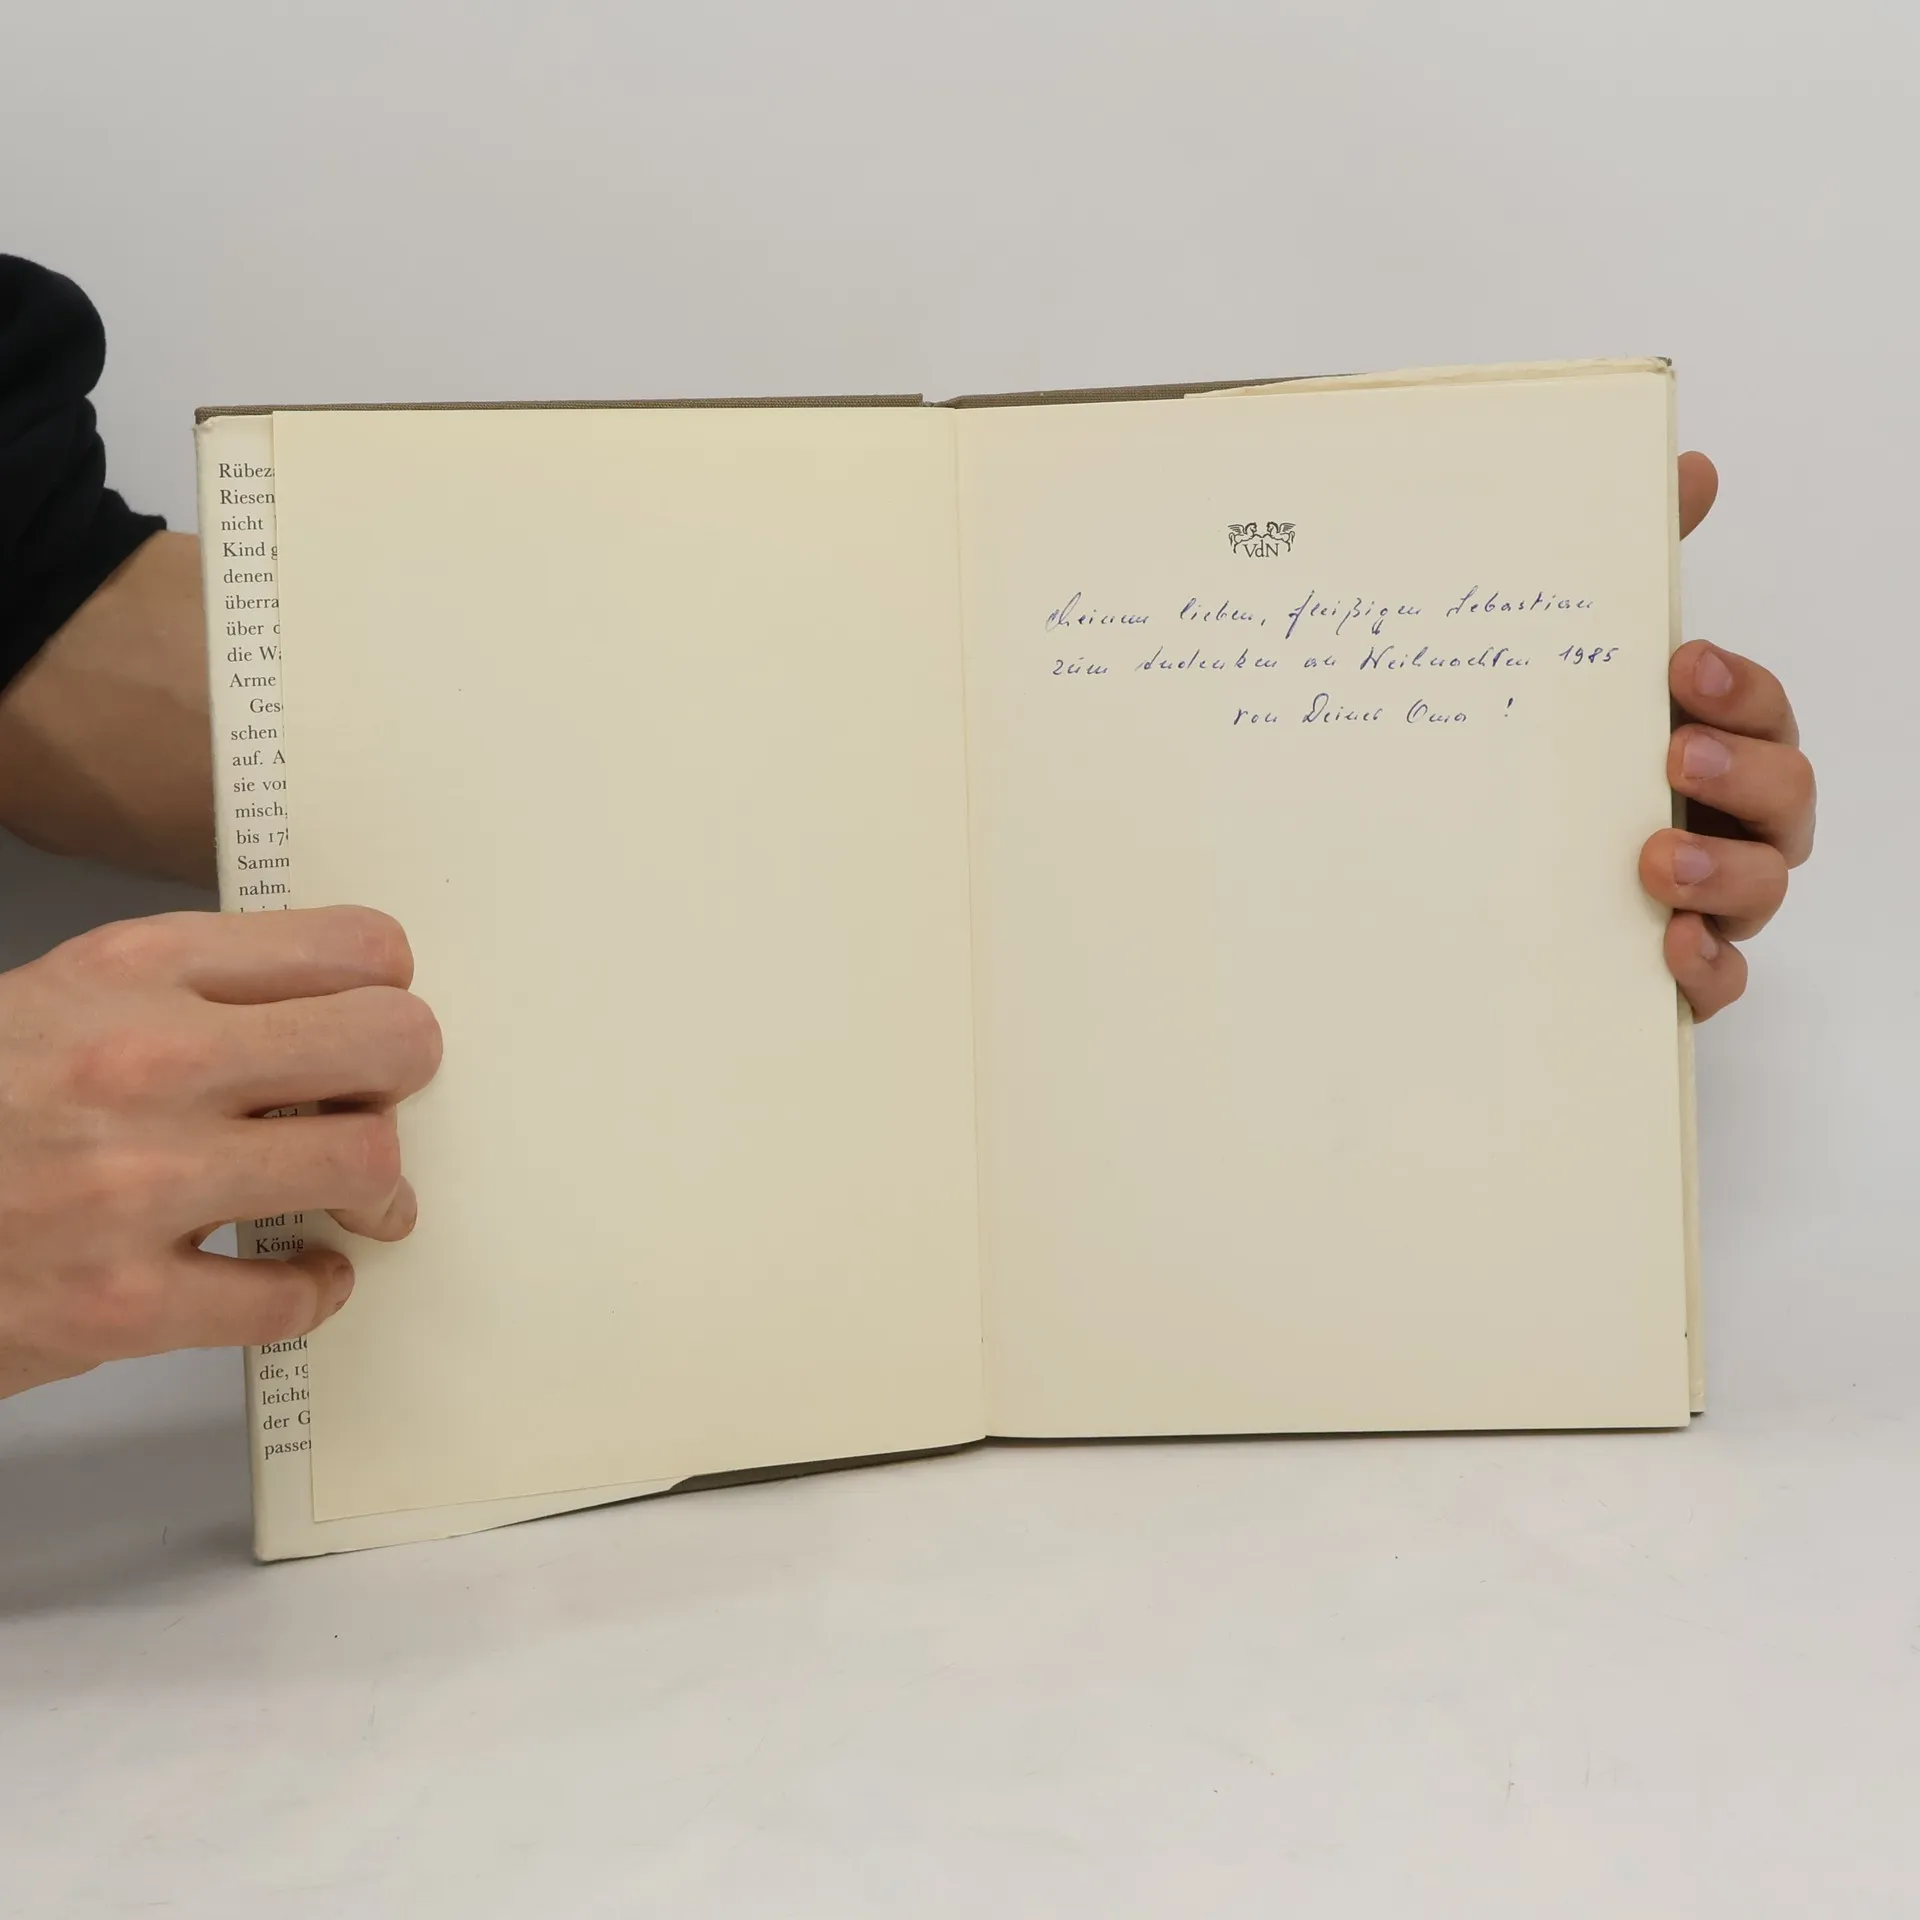 Rübeza
Riesen
nicht
Kind g
denen
überra
über d
die Wa
Arme
Ges
schen
auf. A
sie vor
misch,
bis 178
Samm
nahm.
und i
König
Bande
die, 19
leicht
der G
passe
VdN
Meinem lieben, fleißigen Sebastian
zum Andenken an Weihnachten 1985
von Deiner Oma !